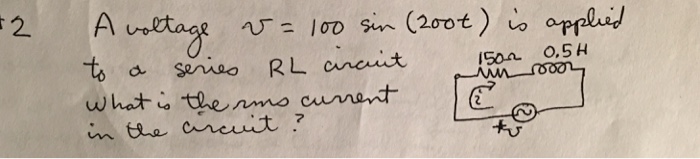 2 A voltage v = 100 sin (200t) is applied
to a series RL circuit
150Ω 0.5H
What is the rms current
i
in the circuit?
+v